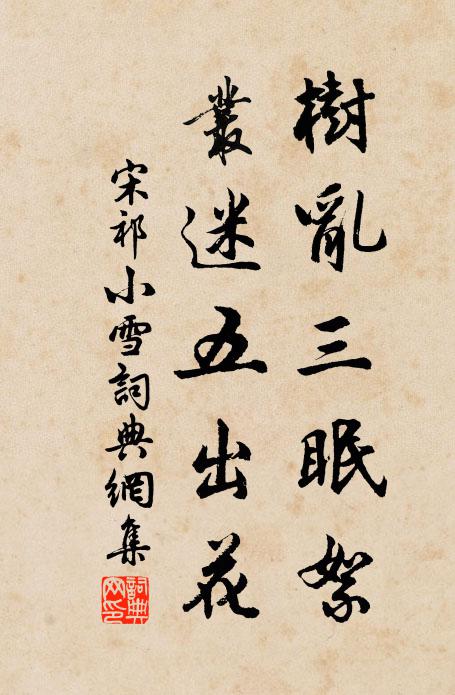 樹亂三眠絮
叢迷五出花
宋祁小雪詞典網集
詞典網印